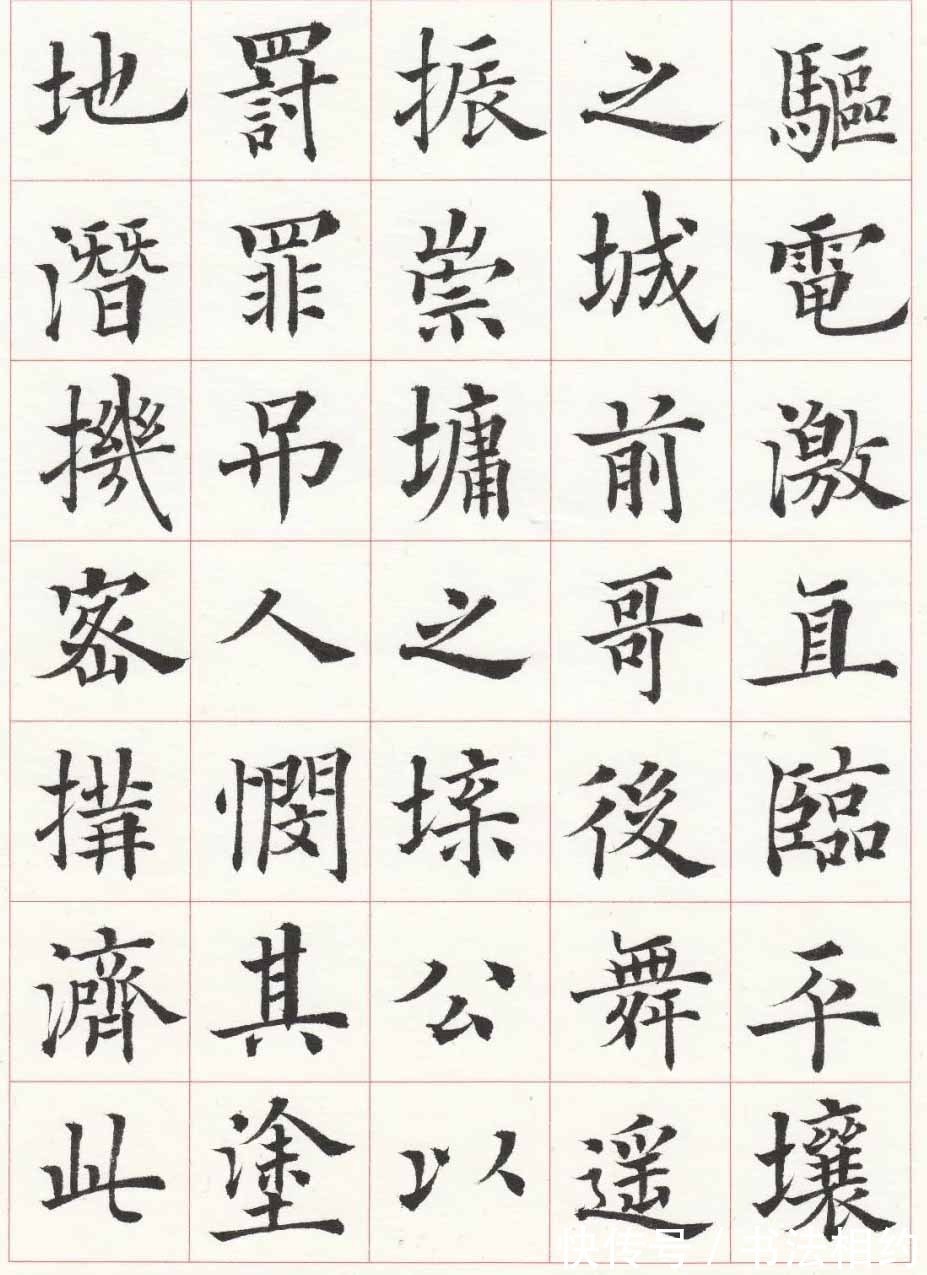 驅電激直臨平壤
之城前哥後舞遥
振崇墉之堞公以
罸罪吊人憫其塗
地潛機密構濟此
快传号 / 书法相约